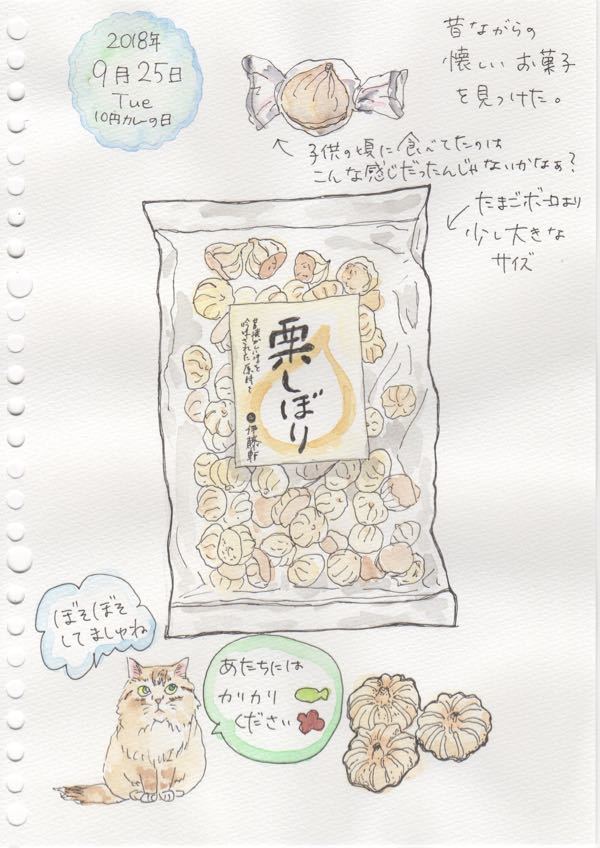 2018年
9月25日
Tue
10円カレーの日
昔ながらの
懐しいお菓子
を見つけた。
子供の頃に食べてたのは
こんな感じだったんじゃないかなぁ?
たまごボーロより
少し大きな
サイズ
栗しぼり
吟味された原材で
伊藤軒
ぼそぼそ
してましゅね
あたちには
カリカリ
ください